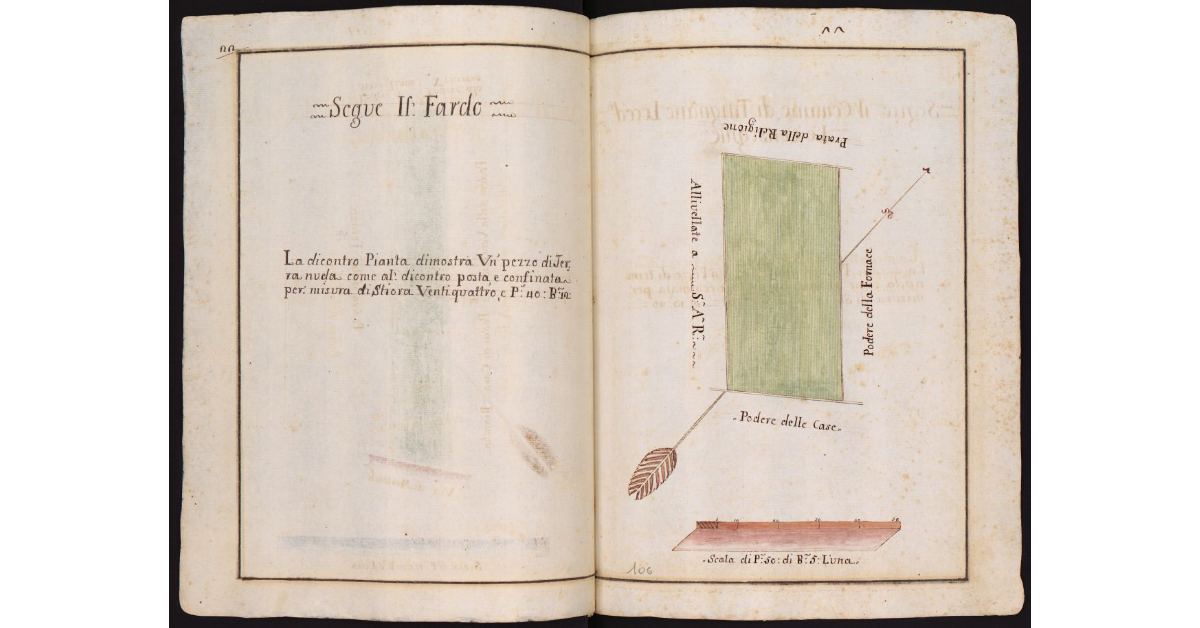 Segue Il: Fardo
La dicontro Pianta dimostra Vn' pezzo di Ter,
ra nuda come al: dicontro posta e confinata
per: misura di Stiora Ventiquattro, e P.e 40: B.a
Prata della Religione
Allivellate a S.A.R.
Podere della Fornace
Podere delle Case
106
Scala di P.e 50: di B.a 5: L'una